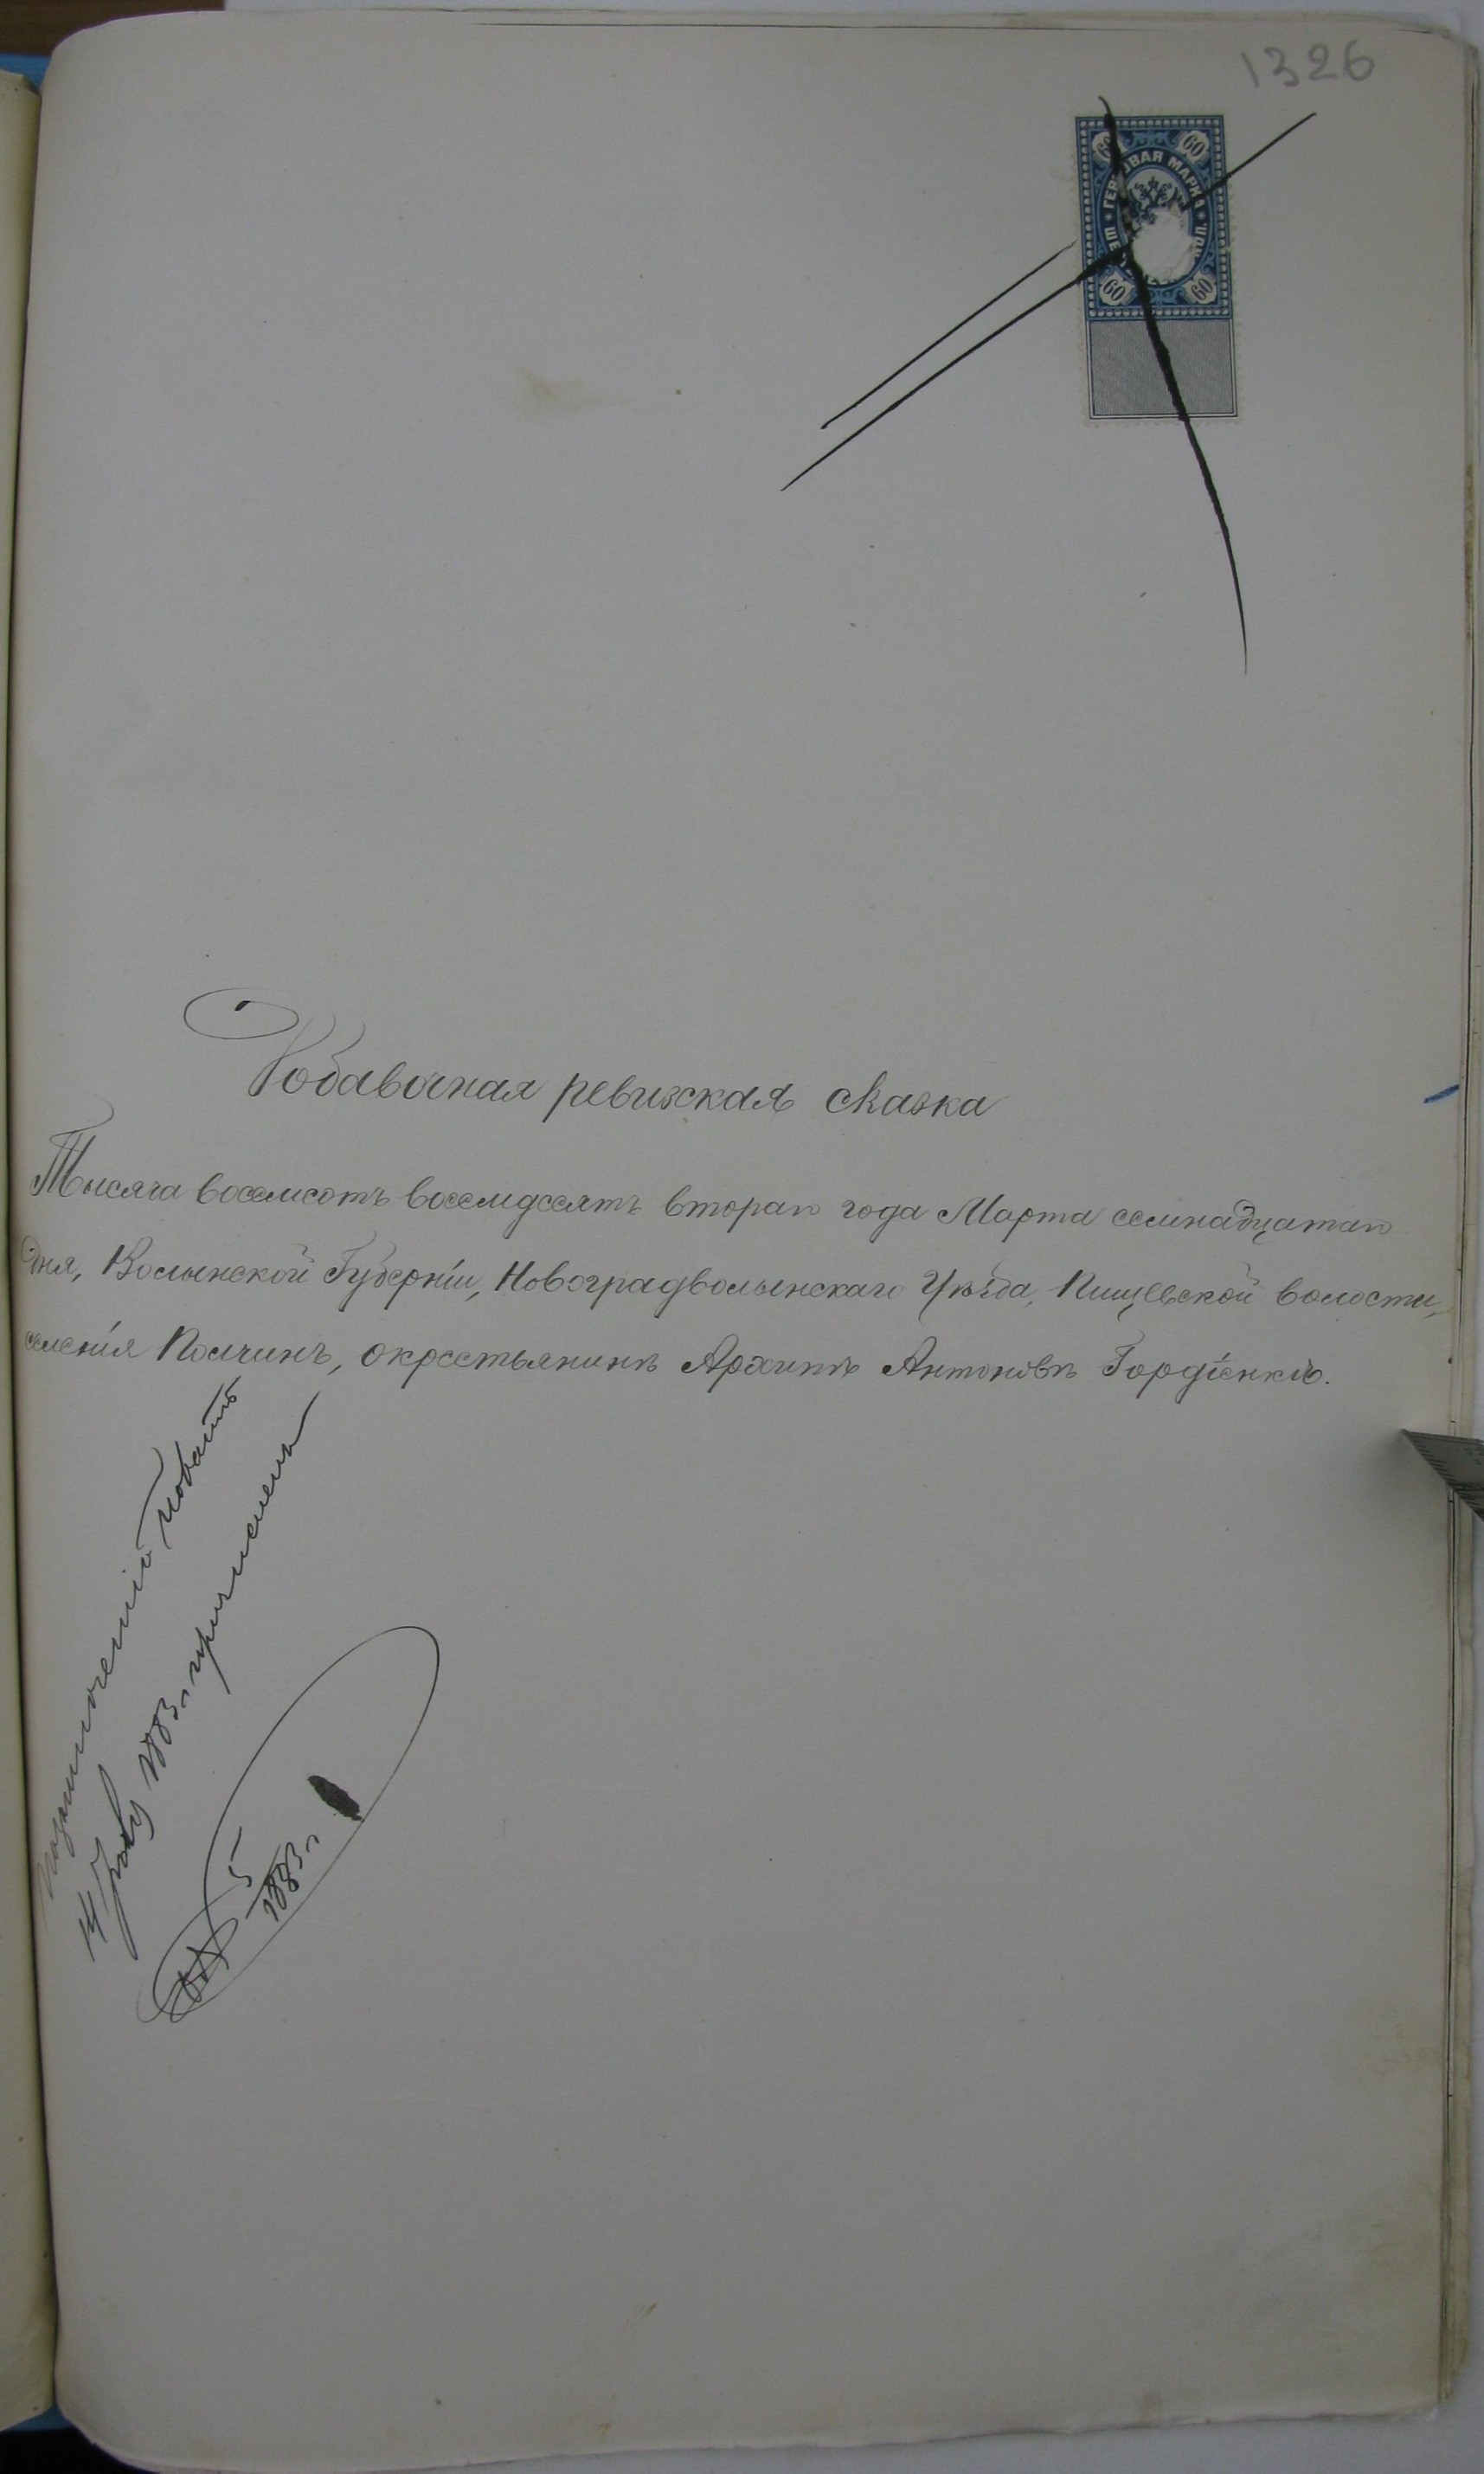 1326
60 60
ГЕРБОВАЯ МАРКА
60 60
Добавочная ревизская сказка
Тысяча восемсотъ восемдсятъ втораго года Марта семнадцатаго
дня, Волынской Губерніи, Новоградволынскаго Уѣзда, Пищевской волости,
селенія Полчинъ, окрестьянинѣ Архипѣ Антоновѣ Гордіенкѣ.
1883 г. причислены
5
1883 г.